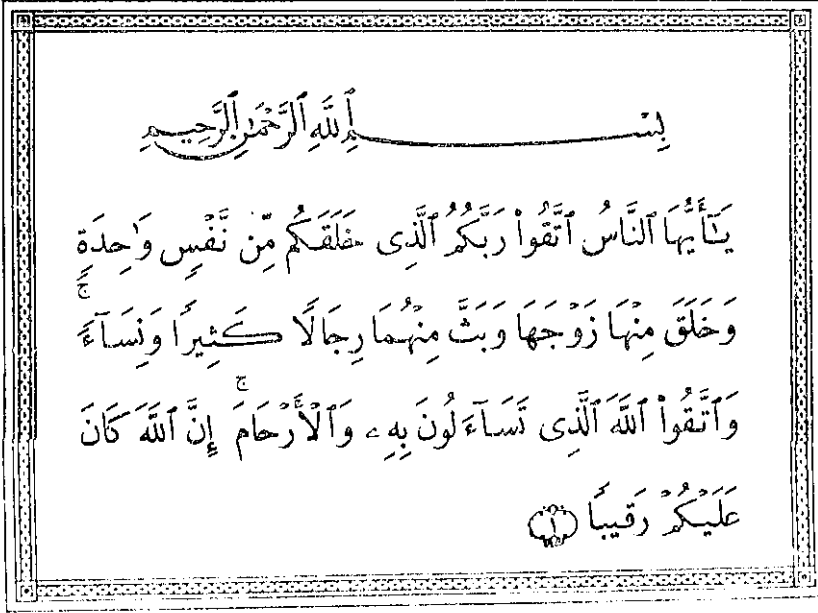 بِسْمِ ٱللَّهِ ٱلرَّحْمَٰنِ ٱلرَّحِيمِ
يَٰٓأَيُّهَا ٱلنَّاسُ ٱتَّقُوا۟ رَبَّكُمُ ٱلَّذِى خَلَقَكُم مِّن نَّفْسٍ وَٰحِدَةٍ
وَخَلَقَ مِنْهَا زَوْجَهَا وَبَثَّ مِنْهُمَا رِجَالًا كَثِيرًا وَنِسَآءً ۚ
وَٱتَّقُوا۟ ٱللَّهَ ٱلَّذِى تَسَآءَلُونَ بِهِۦ وَٱلْأَرْحَامَ ۚ إِنَّ ٱللَّهَ كَانَ
عَلَيْكُمْ رَقِيبًا ﴿١﴾